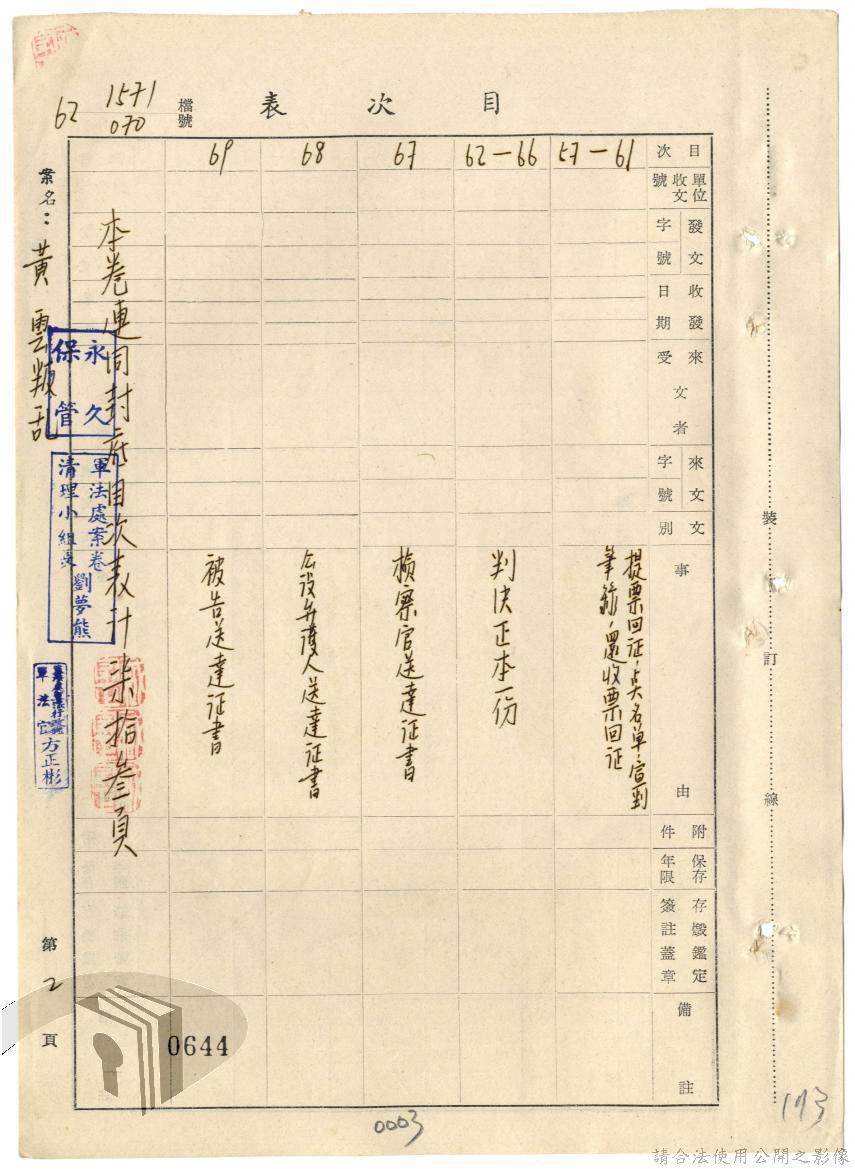 目次表
檔號
62
1571
070
目次
單位收文號
發文字號
收發日期
來文者
受
來文字號
文別
事由
附件
保存年限
存燬鑑定
簽註蓋章
備註
57－61
提票回証，點名單，宣判
筆錄，還收票回証
62－66
判決正本一份
67
檢察官送達証書
68
公設弁護人送達証書
69
被告送達証書
本卷連同封底目次表計柒拾叁頁
案名：黃雲叛乱
永久
保管
軍法處案卷
清理小組長
劉夢熊
軍法官
方正彬
第2頁
裝訂線
0644
0003
173
請合法使用公開之影像